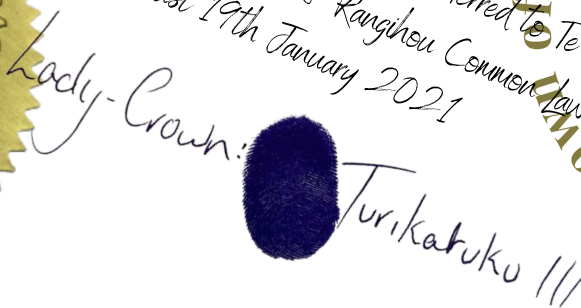 rred to Te
Rangihou Common Law
19th January 2021
Lady-Crown: Turikatuku III